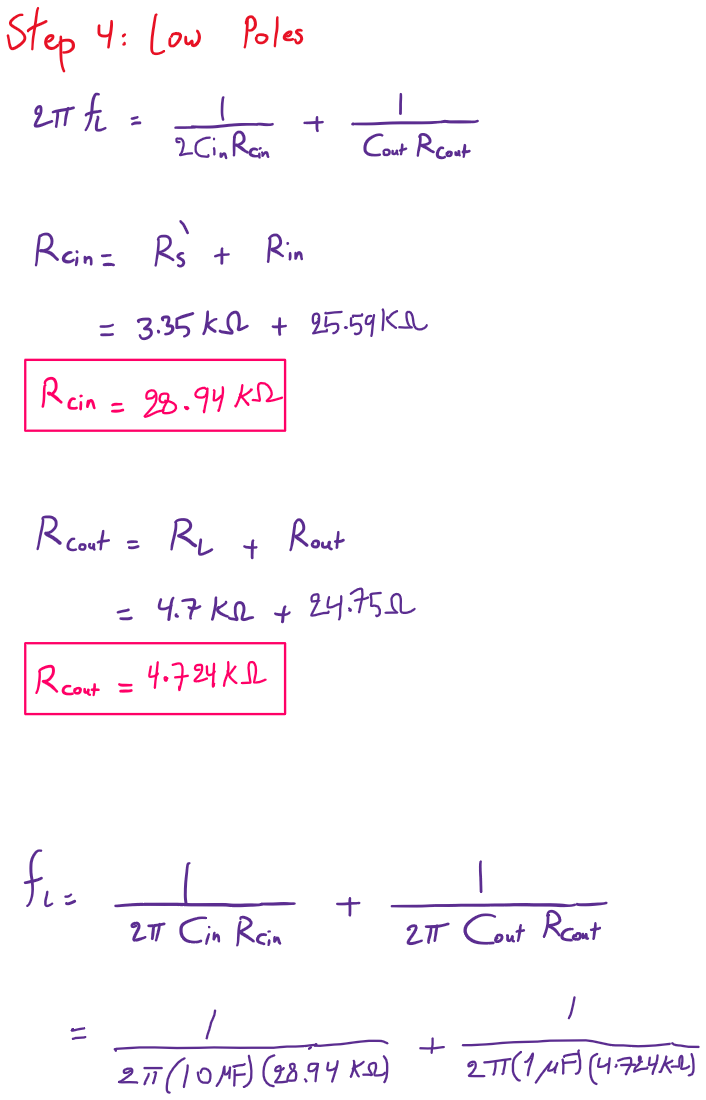 Step 4: Low Poles
2π f_L = 1/(2 C_in R_cin) + 1/(C_out R_cout)
R_cin = R_s` + R_in
= 3.35 kΩ + 25.59 kΩ
R_cin = 28.94 kΩ
R_cout = R_L + R_out
= 4.7 kΩ + 24.75 Ω
R_cout = 4.724 kΩ
f_L = 1/(2π C_in R_cin) + 1/(2π C_out R_cout)
= 1/(2π(10 μF)(28.94 kΩ)) + 1/(2π(1 μF)(4.724 kΩ))